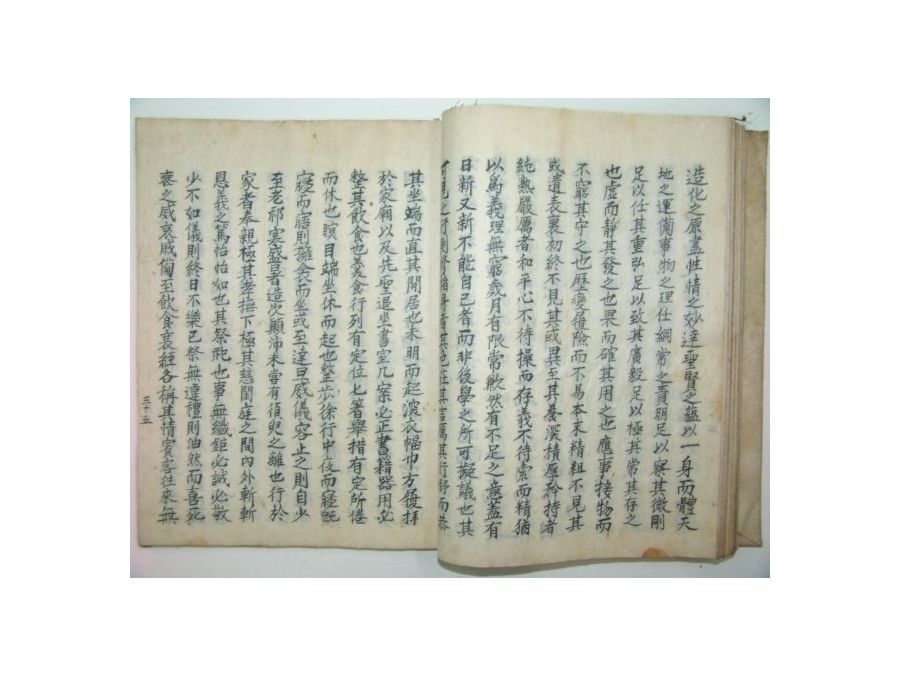 造化之原盡性情之妙達聖賢之蘊以一身而體天
地之運備事物之理仕綱常之責明足以察其微剛
足以任其重弘足以致其廣毅足以極其常其存之
也虛而靜其發之也果而確其用之也應事接物而
不窮其守之也歷變履險而不易本末精粗不見其
或遺表裏初終不見其或異至其養深積厚矜持者
純熟嚴厲者和平心不待操而存義不待索而精猶
以爲義理無窮歲月有限常歉然有不足之意蓋有
日新又新不能自已者而非後學之所可擬議也其
可見之行則修諸身者其色莊其言厲其行舒而恭
其坐端而直其閒居也未明而起深衣幅巾方履拜
於家廟以及先聖退坐書室几案必正書籍器用必
整其飲食也羹食行列有定位匕箸擧措有定所倦
而休也瞑目端坐休而起也整步徐行中夜而寢旣
寢而寤則擁衾而坐或至達旦威儀容止之則自少
至老祁寒盛暑造次顚沛未嘗有須臾之離也行於
家者奉親極其孝撫下極其慈閨庭之間內外斬斬
恩義之篤怡怡如也其祭祀也事無纖鉅必誠必敬
少不如儀則終日不樂已祭無違禮則油然而喜死
喪之威哀戚備至飲食衰絰各稱其情賓客往來無
三十五